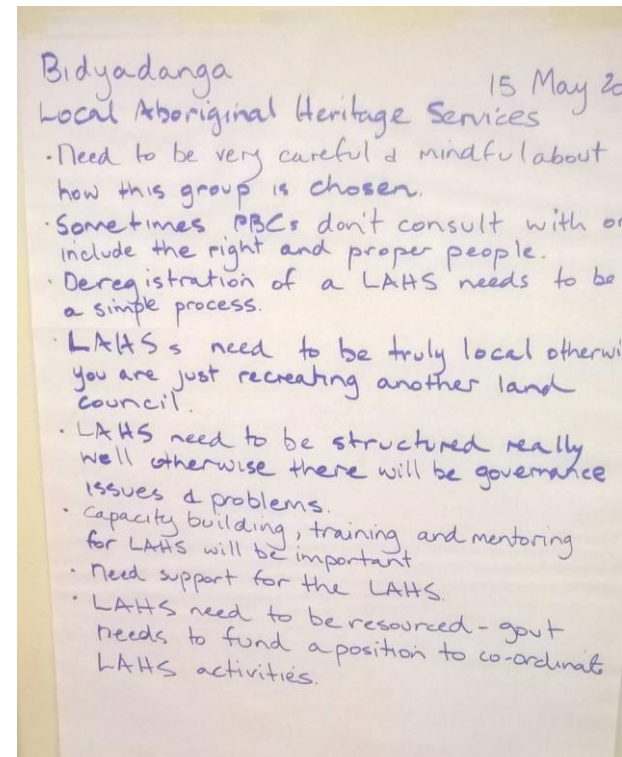 Bidyadanga
15 May 20
Local Aboriginal Heritage Services
· Need to be very careful & mindful about
how this group is chosen.
· Sometimes PBCs don't consult with or
include the right and proper people.
· Deregistration of a LAHS needs to be
a simple process.
· LAHSs need to be truly local otherwi
you are just recreating another land
council.
· LAHS need to be structured really
well otherwise there will be governance
issues & problems.
· Capacity building, training and mentoring
for LAHS will be important
· Need support for the LAHS.
· LAHS need to be resourced - govt
needs to fund a position to co-ordinat
LAHS activities.